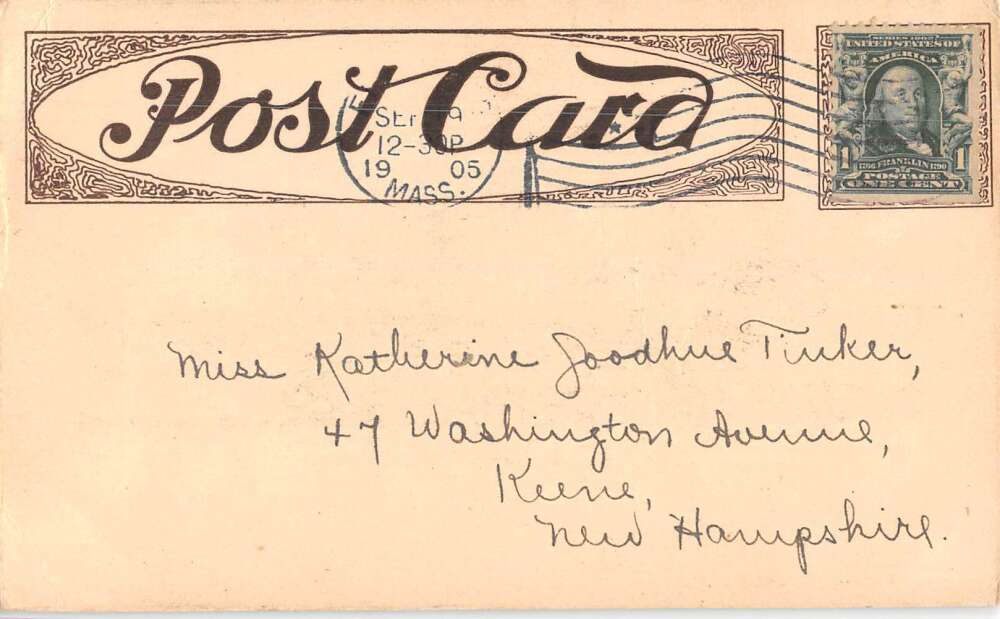 Post Card
SERIES 1902
UNITED STATES OF
AMERICA
1 1706 FRANKLIN 1790 1
POSTAGE
ONE CENT
12-30P
1905
MASS.
Miss Katherine Goodhue Tinker,
47 Washington Avenue,
Keene,
New Hampshire.